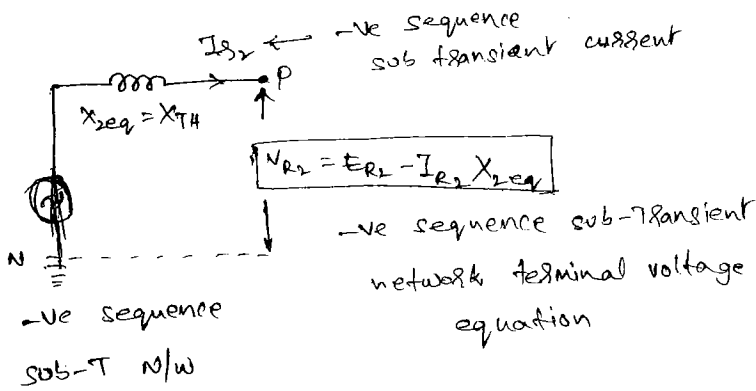 I_R2 ← -ve sequence
sub transient current
P
X_2eq = X_TH
V_R2 = E_R2 - I_R2 X_2eq
-ve sequence sub-Transient
network terminal voltage
equation
N
-ve sequence
Sub-T N/W